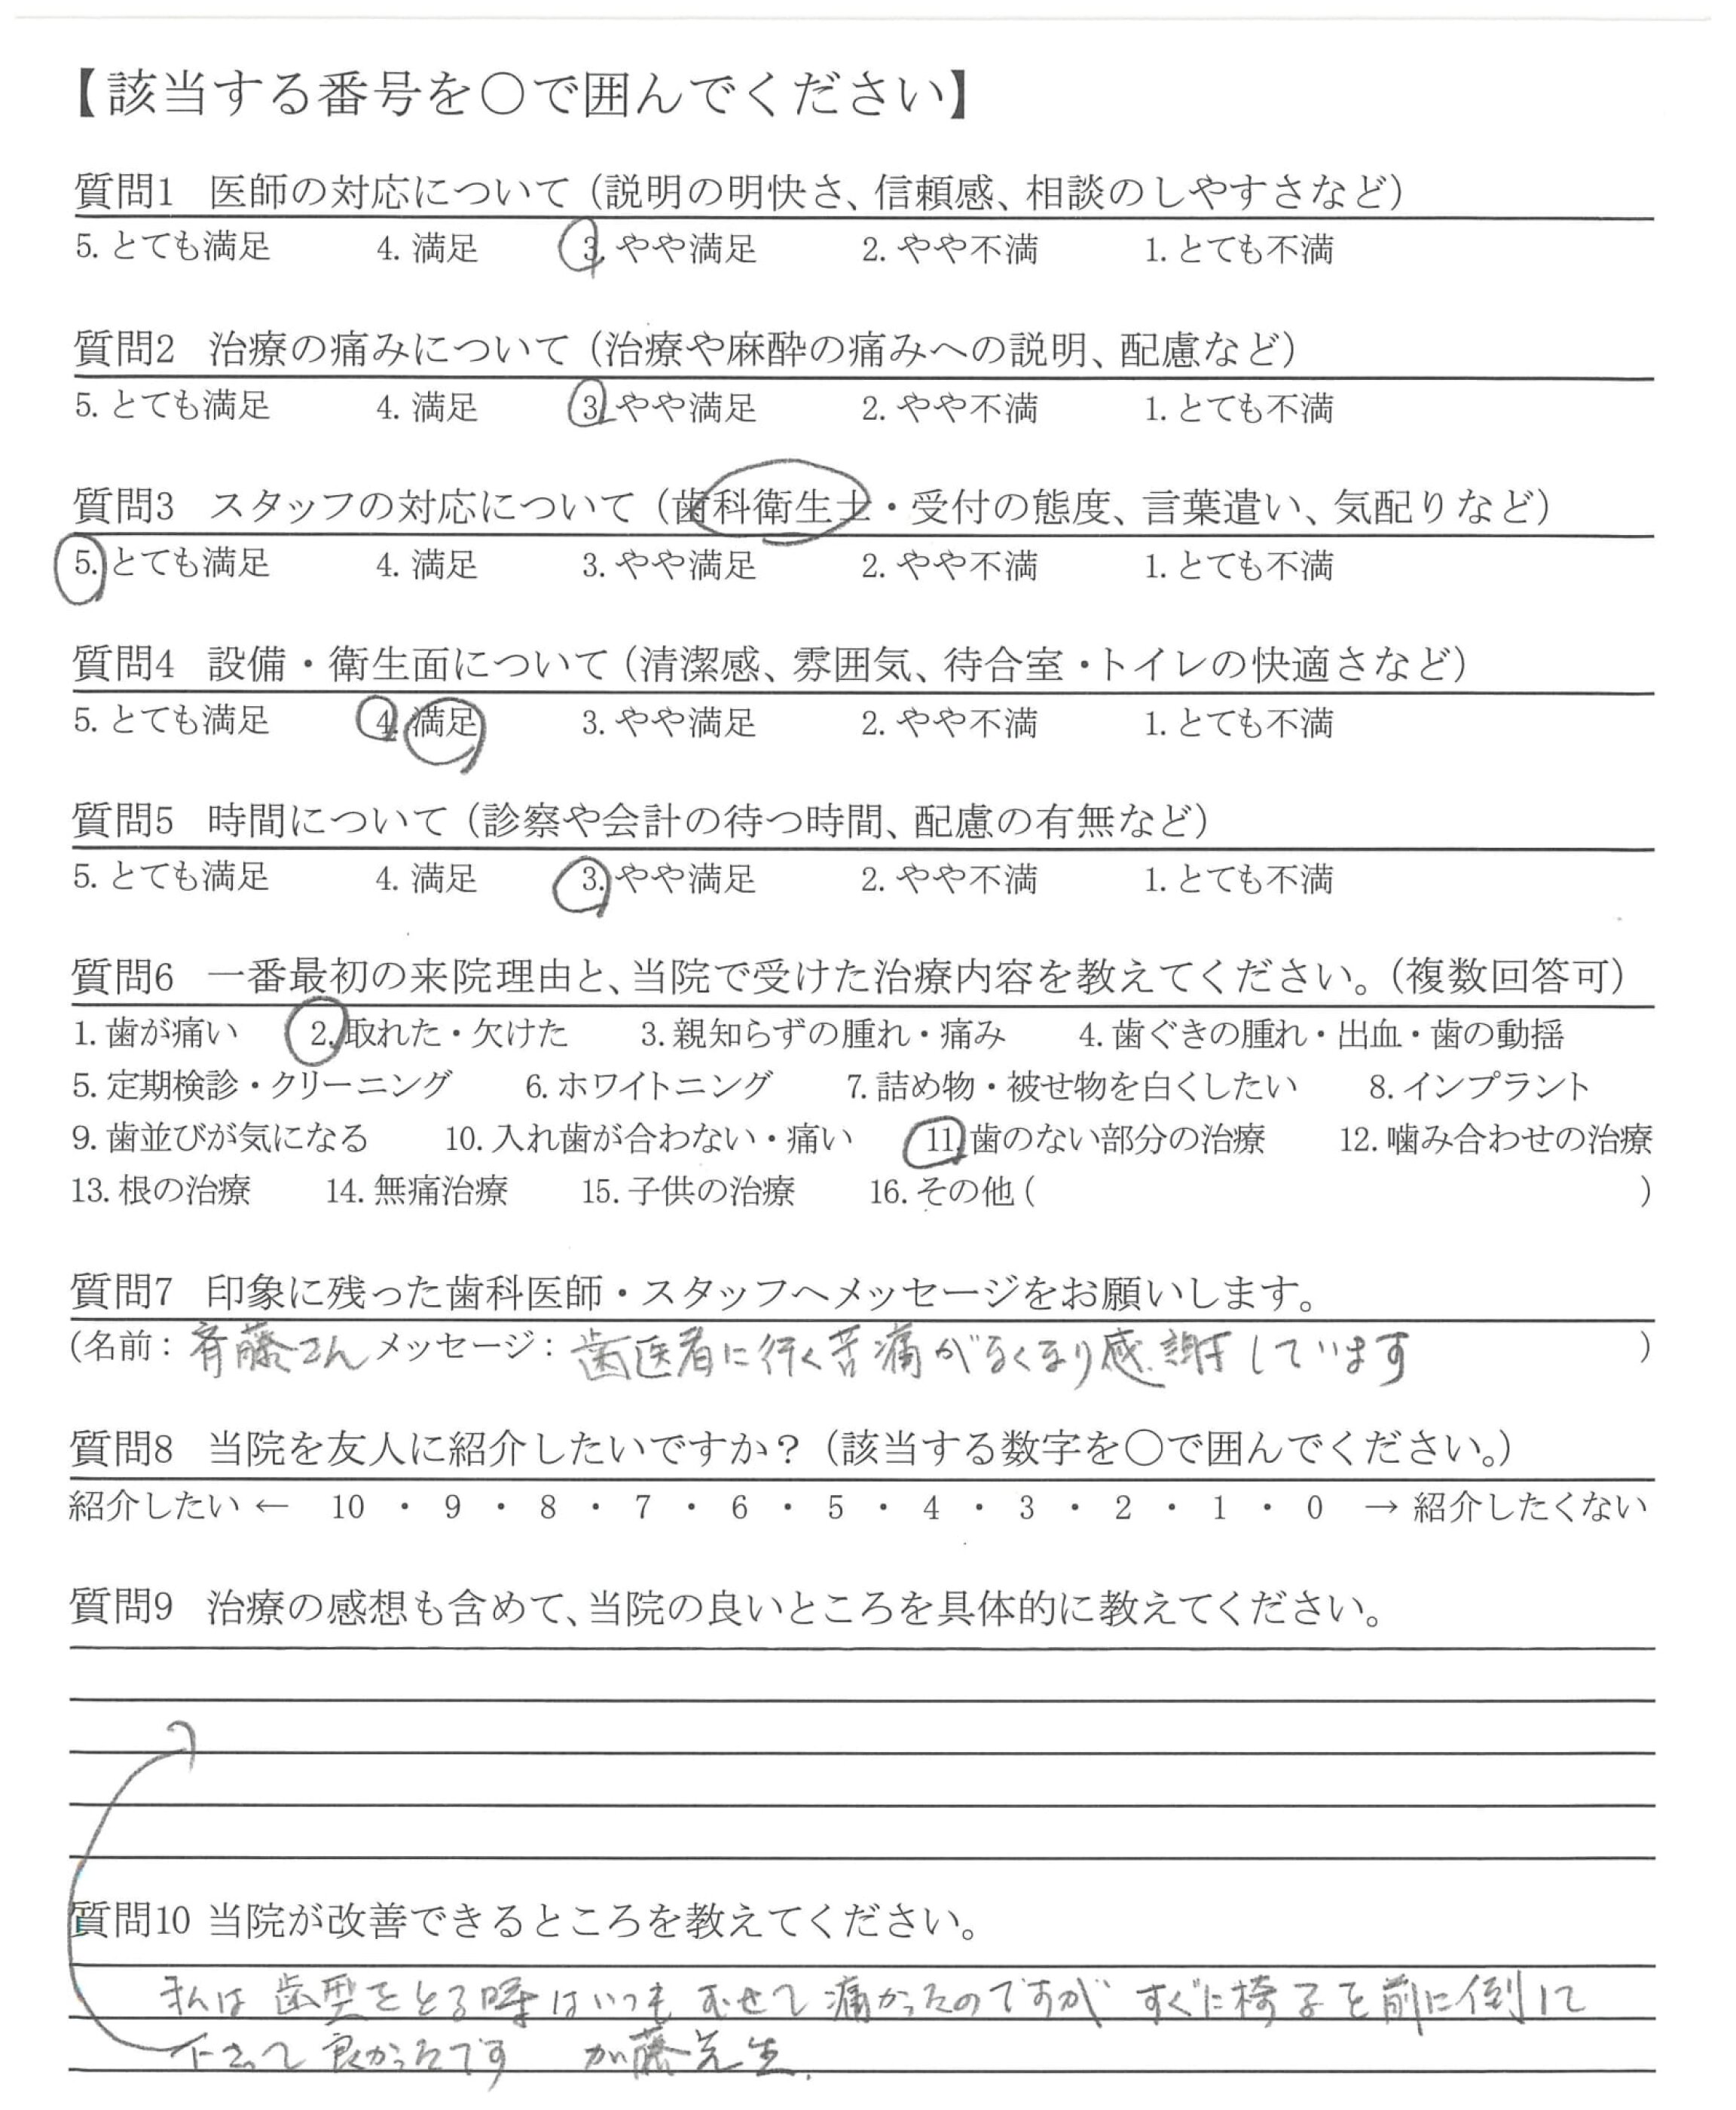 【該当する番号を○で囲んでください】
質問1 医師の対応について（説明の明快さ、信頼感、相談のしやすさなど）
5. とても満足 4. 満足 3. やや満足 2. やや不満 1. とても不満
質問2 治療の痛みについて（治療や麻酔の痛みへの説明、配慮など）
5. とても満足 4. 満足 3. やや満足 2. やや不満 1. とても不満
質問3 スタッフの対応について（歯科衛生士・受付の態度、言葉遣い、気配りなど）
5. とても満足 4. 満足 3. やや満足 2. やや不満 1. とても不満
質問4 設備・衛生面について（清潔感、雰囲気、待合室・トイレの快適さなど）
5. とても満足 4. 満足 3. やや満足 2. やや不満 1. とても不満
質問5 時間について（診察や会計の待つ時間、配慮の有無など）
5. とても満足 4. 満足 3. やや満足 2. やや不満 1. とても不満
質問6 一番最初の来院理由と、当院で受けた治療内容を教えてください。（複数回答可）
1. 歯が痛い 2. 取れた・欠けた 3. 親知らずの腫れ・痛み 4. 歯ぐきの腫れ・出血・歯の動揺
5. 定期検診・クリーニング 6. ホワイトニング 7. 詰め物・被せ物を白くしたい 8. インプラント
9. 歯並びが気になる 10. 入れ歯が合わない・痛い 11. 歯のない部分の治療 12. 噛み合わせの治療
13. 根の治療 14. 無痛治療 15. 子供の治療 16. その他（ ）
質問7 印象に残った歯科医師・スタッフへメッセージをお願いします。
（名前：斉藤さん メッセージ：歯医者に行く苦痛がなくなり感謝しています ）
質問8 当院を友人に紹介したいですか？（該当する数字を○で囲んでください。）
紹介したい ← 10 ・ 9 ・ 8 ・ 7 ・ 6 ・ 5 ・ 4 ・ 3 ・ 2 ・ 1 ・ 0 → 紹介したくない
質問9 治療の感想も含めて、当院の良いところを具体的に教えてください。
質問10 当院が改善できるところを教えてください。
私は歯型をとる時はいつもむせて痛かったのですが すぐに椅子を前に倒して
下さって良かったです 加藤先生.